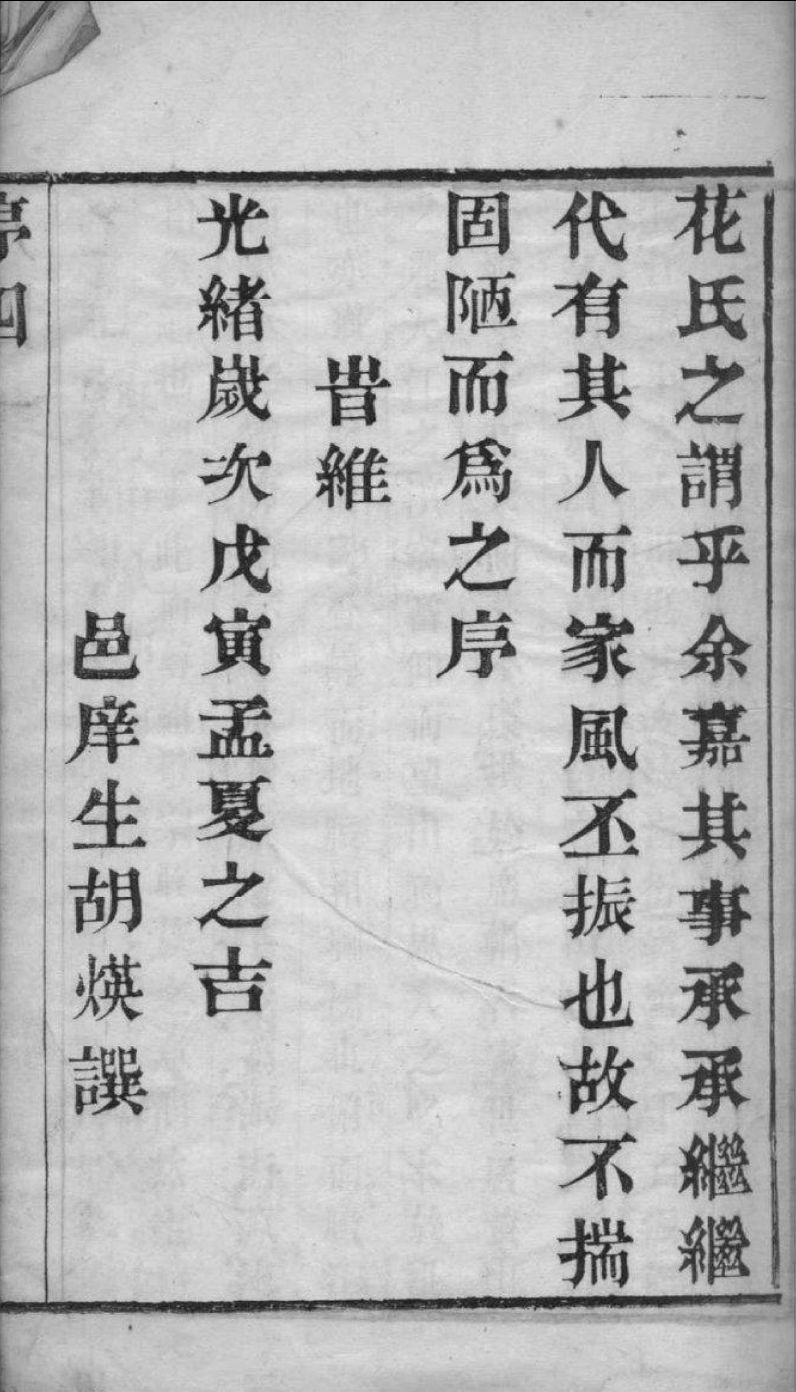 花氏之謂乎余嘉其事承承繼繼
代有其人而家風丕振也故不揣
固陋而爲之序
旹維
光緒歲次戊寅孟夏之吉
邑庠生胡煐譔